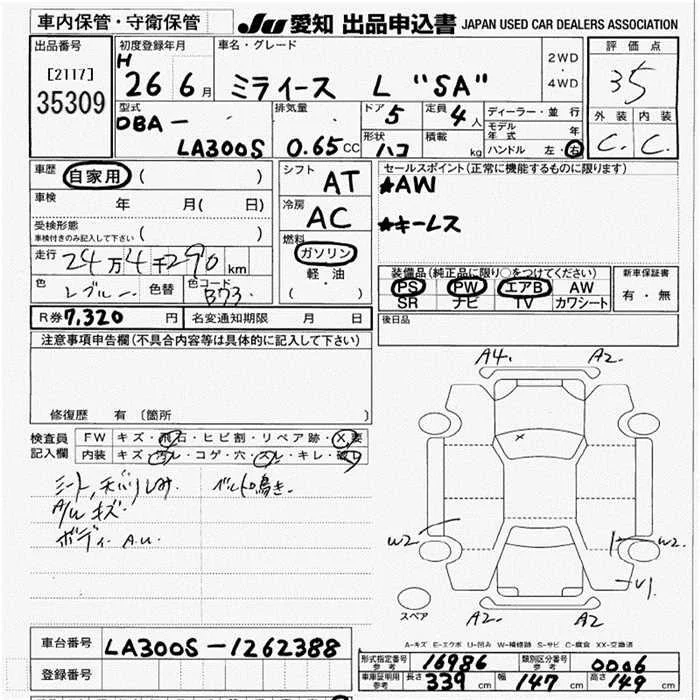 車内保管・守衛保管
JU 愛知 出品申込書 JAPAN USED CAR DEALERS ASSOCIATION
出品番号
[2117]
35309
初度登録年月
H 26 6月
車名・グレード
ミライース L "SA"
2WD
・
4WD
評価点
35
外装 内装
C. C.
型式
DBA-
LA300S
排気量
0.65 CC
ドア 5
定員 4人
形状 ハコ
積載 kg
ディーラー・並行
モデル年式 年
ハンドル 左・右
車歴 自家用 ( )
車検 年 月( 日)
受検形態
車検付きのみ記入して下さい ( )
走行 24万4千290km
色 色替 色コード B73.
シフト AT
冷房 AC
燃料
ガソリン
軽・油
( )
セールスポイント(正常に機能するものに限ります)
★AW
★キーレス
装備品(純正品に限り○をつけてください)
PS PW エアB AW
SR ナビ TV カワシート
新車保証書
有・無
R券 7,320 円 名変通知期限 月 日
後日品
注意事項申告欄(不具合内容等は具体的に記入して下さい)
修復歴 有 〔箇所 〕
検査員
記入欄
FW キズ・飛石・ヒビ割・リペア跡・X要
内装 キズ・汚レ・コゲ・穴・スレ・キレ・破レ
シート,天バリしみ. ベルト鳴き.
A/W キズ.
ボディ A.U.
A4. A2.
W2 W2.
U1.
A2. A2
スペア
A-キズ E-エクボ U-凹み W-補修跡 S-サビ C-腐食 XX-交換済
車台番号 LA300S-1262388
登録番号
形式指定番号
参考
16986
類別区分番号
参考
0006
車庫証明用
参考
長さ 339 cm 幅 147 cm 高さ 149 cm